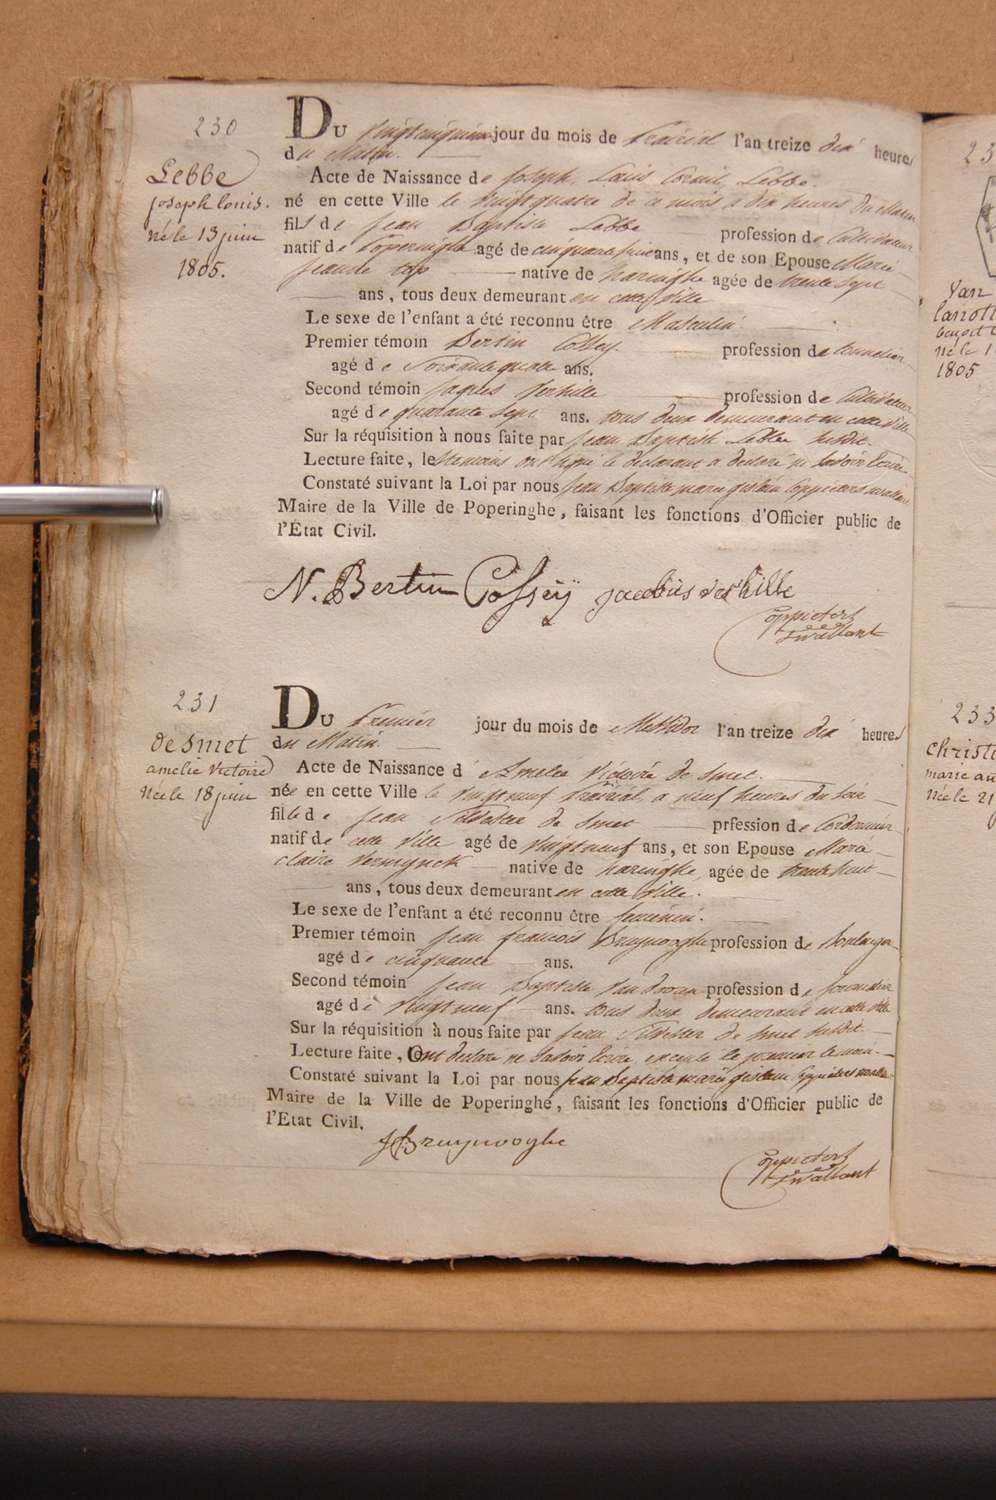 230
Lebbe
joseph louis.
né le 13 juin
1805.
Du vingtcinquieme jour du mois de Prairial l'an treize dix heures
du Matin.
Acte de Naissance de joseph Louis Corneil Lebbe.
né en cette Ville le vingtquatre de ce mois a dix heures du Matin
fils de jean Baptiste Lebbe profession de Cultivateur
natif de Poperinghe agé de cinquante ans, et de son Epouse Marie
native de haringhe agée de trente sept
ans, tous deux demeurant en cette ville
Le sexe de l'enfant a été reconnu être Masculin
Premier témoin Bertin Cossey profession de tonnelier
agé de Soixante quatre ans.
Second témoin jaques profession de Cultivateur
agé de quarante sept ans. tous deux demeurant en cette ville
Sur la réquisition à nous faite par jean Baptiste Lebbe susdit.
Lecture faite, les temoins ont signé le declarant a declaré ne savoir Ecrire
Constaté suivant la Loi par nous jean Baptiste marie gislain Coppieters
Maire de la Ville de Poperinghe, faisant les fonctions d'Officier public de
l'État Civil.
N. Bertin Cosseÿ jacobus
Coppieters
Stwallant
231
de smet
amelie victoire
née le 18 juin
Du Premier jour du mois de Messidor l'an treize dix heures
du Matin.
Acte de Naissance d'Amelie Victoire de Smet.
née en cette Ville le vingtneuf Prairial a neuf heures du soir
fille de jean de Smet prfession de Cordonnier
natif de cette ville agé de vingtneuf ans, et son Epouse Marie
claire Vermynck native de haringhe agée de trente huit
ans, tous deux demeurant en cette ville.
Le sexe de l'enfant a été reconnu être feminin.
Premier témoin jean francois Bruynooghe profession de Boulanger
agé de cinquante ans.
Second témoin jean Baptiste profession de journalier
agé de vingtneuf ans. tous deux demeurant en cette ville
Sur la réquisition à nous faite par jean de Smet susdit
Lecture faite, Ont declaré ne savoir Ecrire, excepté le premier temoin
Constaté suivant la Loi par nous jean Baptiste marie gislain Coppieters
Maire de la Ville de Poperinghe, faisant les fonctions d'Officier public de
l'Etat Civil.
J Bruynooghe
Coppieters
Stwallant
23
Van
benoit
né le 1
1805
233
christi
marie an
née le 21